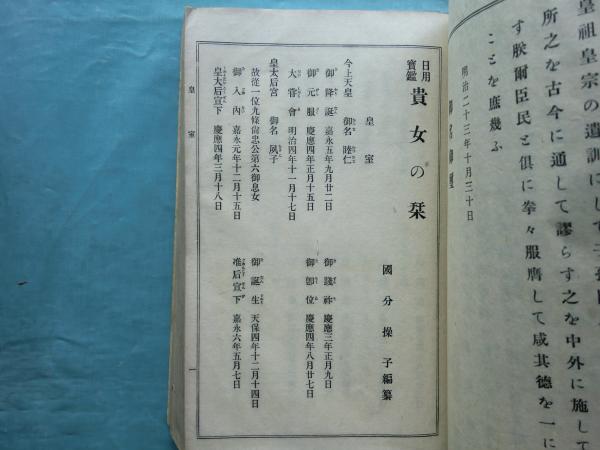 皇祖皇宗の遺訓にして子孫臣
所之を古今に通して謬らす之を中外に施して
す朕爾臣民と俱に拳々服膺して咸其德を一に
ことを庶幾ふ
明治二十三年十月三十日
御名御璽
日用寶鑑 貴女の栞
國分操子編纂
皇室
今上天皇 御名 睦仁
御降誕 嘉永五年九月廿二日 御踐祚 慶應三年正月九日
御元服 慶應四年正月十五日 御卽位 慶應四年八月廿七日
大嘗會 明治四年十一月十七日
皇太后宮 御名 夙子
故從一位九條尙忠公第六御息女
御入內 嘉永元年十二月十五日 御誕生 天保四年十二月十四日
皇太后宣下 慶應四年三月十八日 准后宣下 嘉永六年五月七日
皇室
一